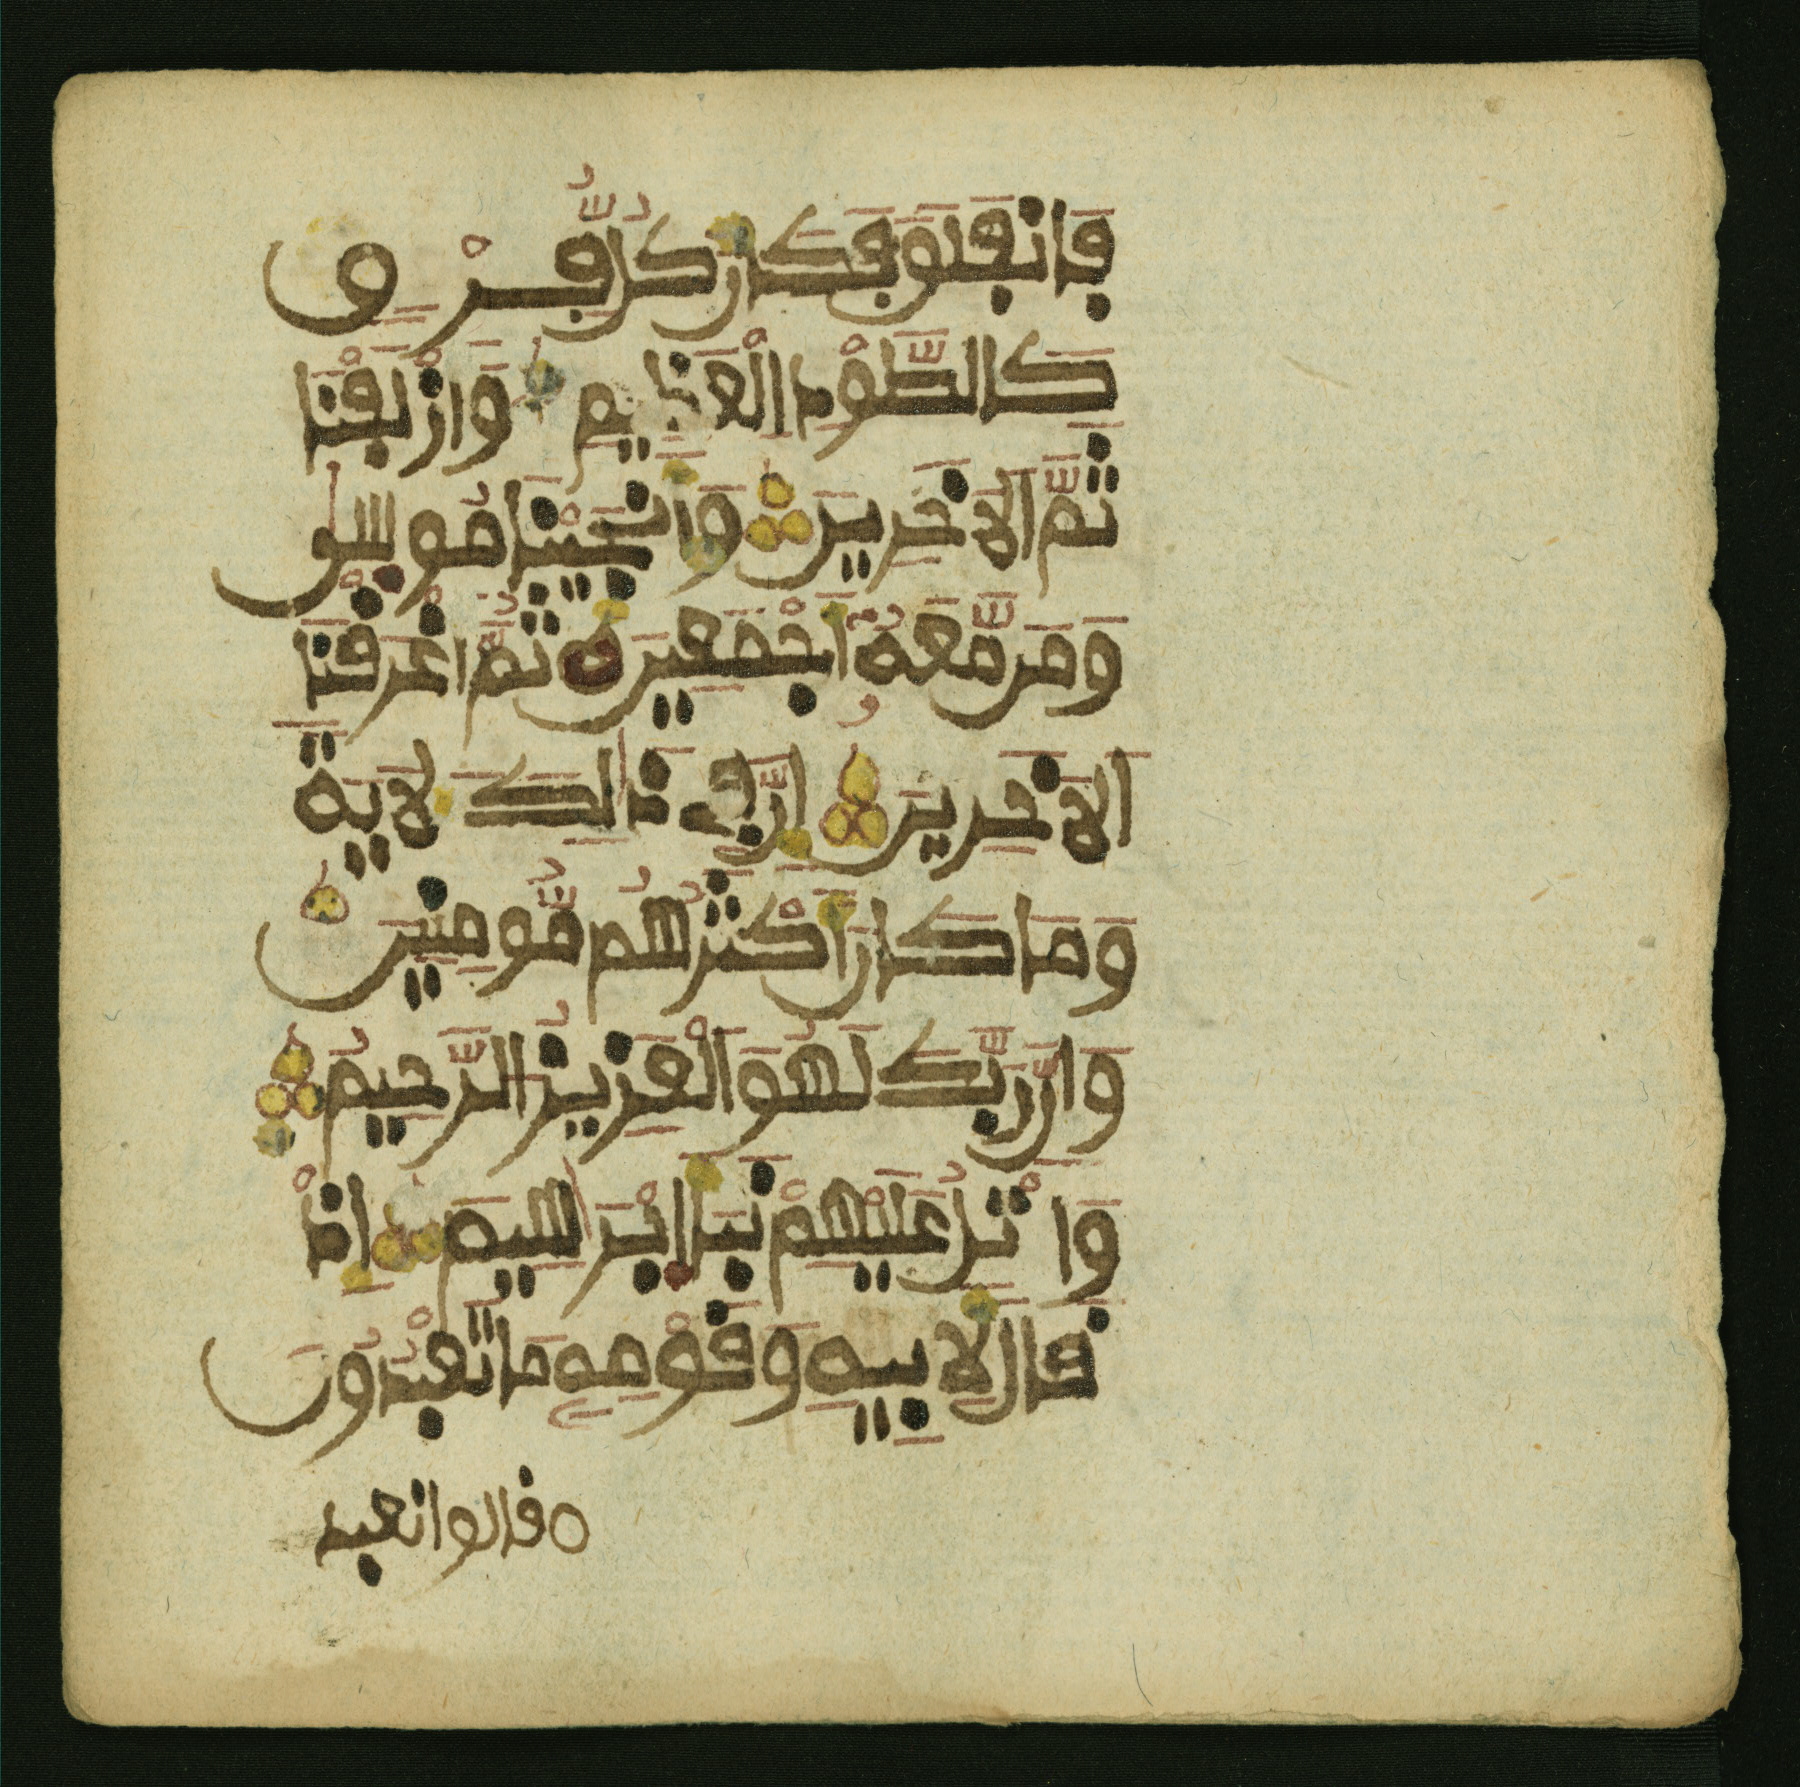 فَانفَلَقَ فَكَانَ كُلُّ فِرْقٍ
كَالطَّوْدِ الْعَظِيمِ وَأَزْلَفْنَا
ثَمَّ الَاخَرِينَ وَأَنجَيْنَا مُوسىٰ
وَمَن مَّعَهُۥ أَجْمَعِينَ ثُمَّ أَغْرَقْنَا
الَاخَرِينَ إِنَّ فِي ذَٰلِكَ لَأيَةً
وَمَا كَانَ أَكْثَرُهُم مُّومِنِينَ
وَإِنَّ رَبَّكَ لَهُوَ الْعَزِيزُ الرَّحِيمُ
وَاتْلُ عَلَيْهِمْ نَبَأَ إِبْرَٰهِيمَ إِذْ
قَالَ لِأَبِيهِ وَقَوْمِهِۦ مَا تَعْبُدُونَ
قالوا نعبد